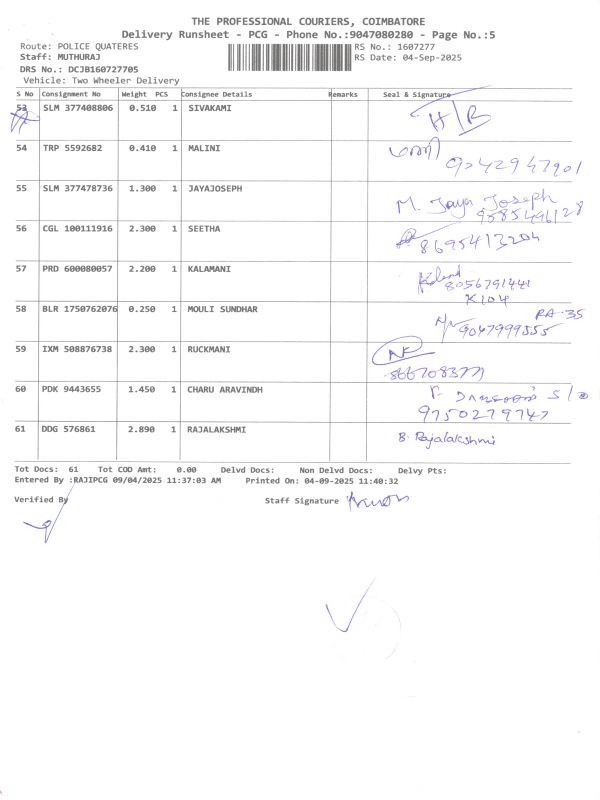 THE PROFESSIONAL COURIERS, COIMBATORE
Delivery Runsheet - PCG - Phone No.:9047080280 - Page No.:5
Route: POLICE QUATERES RS No.: 1607277
Staff: MUTHURAJ RS Date: 04-Sep-2025
DRS No.: DCJB160727705
Vehicle: Two Wheeler Delivery
S No Consignment No Weight PCS Consignee Details Remarks Seal & Signature
53 SLM 377408806 0.510 1 SIVAKAMI H/R
54 TRP 5592682 0.410 1 MALINI
9042947901
55 SLM 377478736 1.300 1 JAYAJOSEPH M. Jaya Joseph
9585496128
56 CGL 100111916 2.300 1 SEETHA
8695413204
57 PRD 600080057 2.200 1 KALAMANI
8056791441
K104
58 BLR 1750762076 0.250 1 MOULI SUNDHAR RA-35
9047999555
59 IXM 508876738 2.300 1 RUCKMANI
60 PDK 9443655 1.450 1 CHARU ARAVINDH
9750279747
61 DDG 576861 2.890 1 RAJALAKSHMI B. Rajalakshmi
Tot Docs: 61 Tot COD Amt: 0.00 Delvd Docs: Non Delvd Docs: Delvy Pts:
Entered By :RAJIPCG 09/04/2025 11:37:03 AM Printed On: 04-09-2025 11:40:32
Verified By Staff Signature